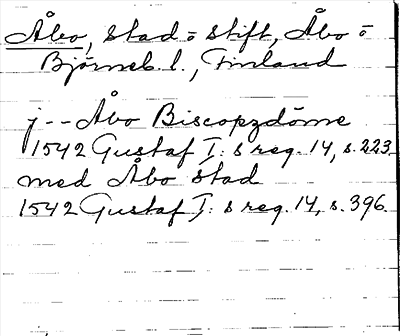 Åbo, stad o stift, Åbo o
Björneb. l., Finland
j -- Åbo Biscopzdöme
1542 Gustaf I: s reg. 14, s. 223.
med Åbo stad
1542 Gustaf I: s reg. 14, s. 396.